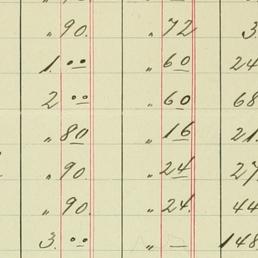 „ 90. „ 72 3
1. 00 „ 60 24
2 00 „ 60 68
„ 80 „ 16 21.
„ 90 „ 24 27
„ 90. „ 24. 44
3. 00 „ — 148